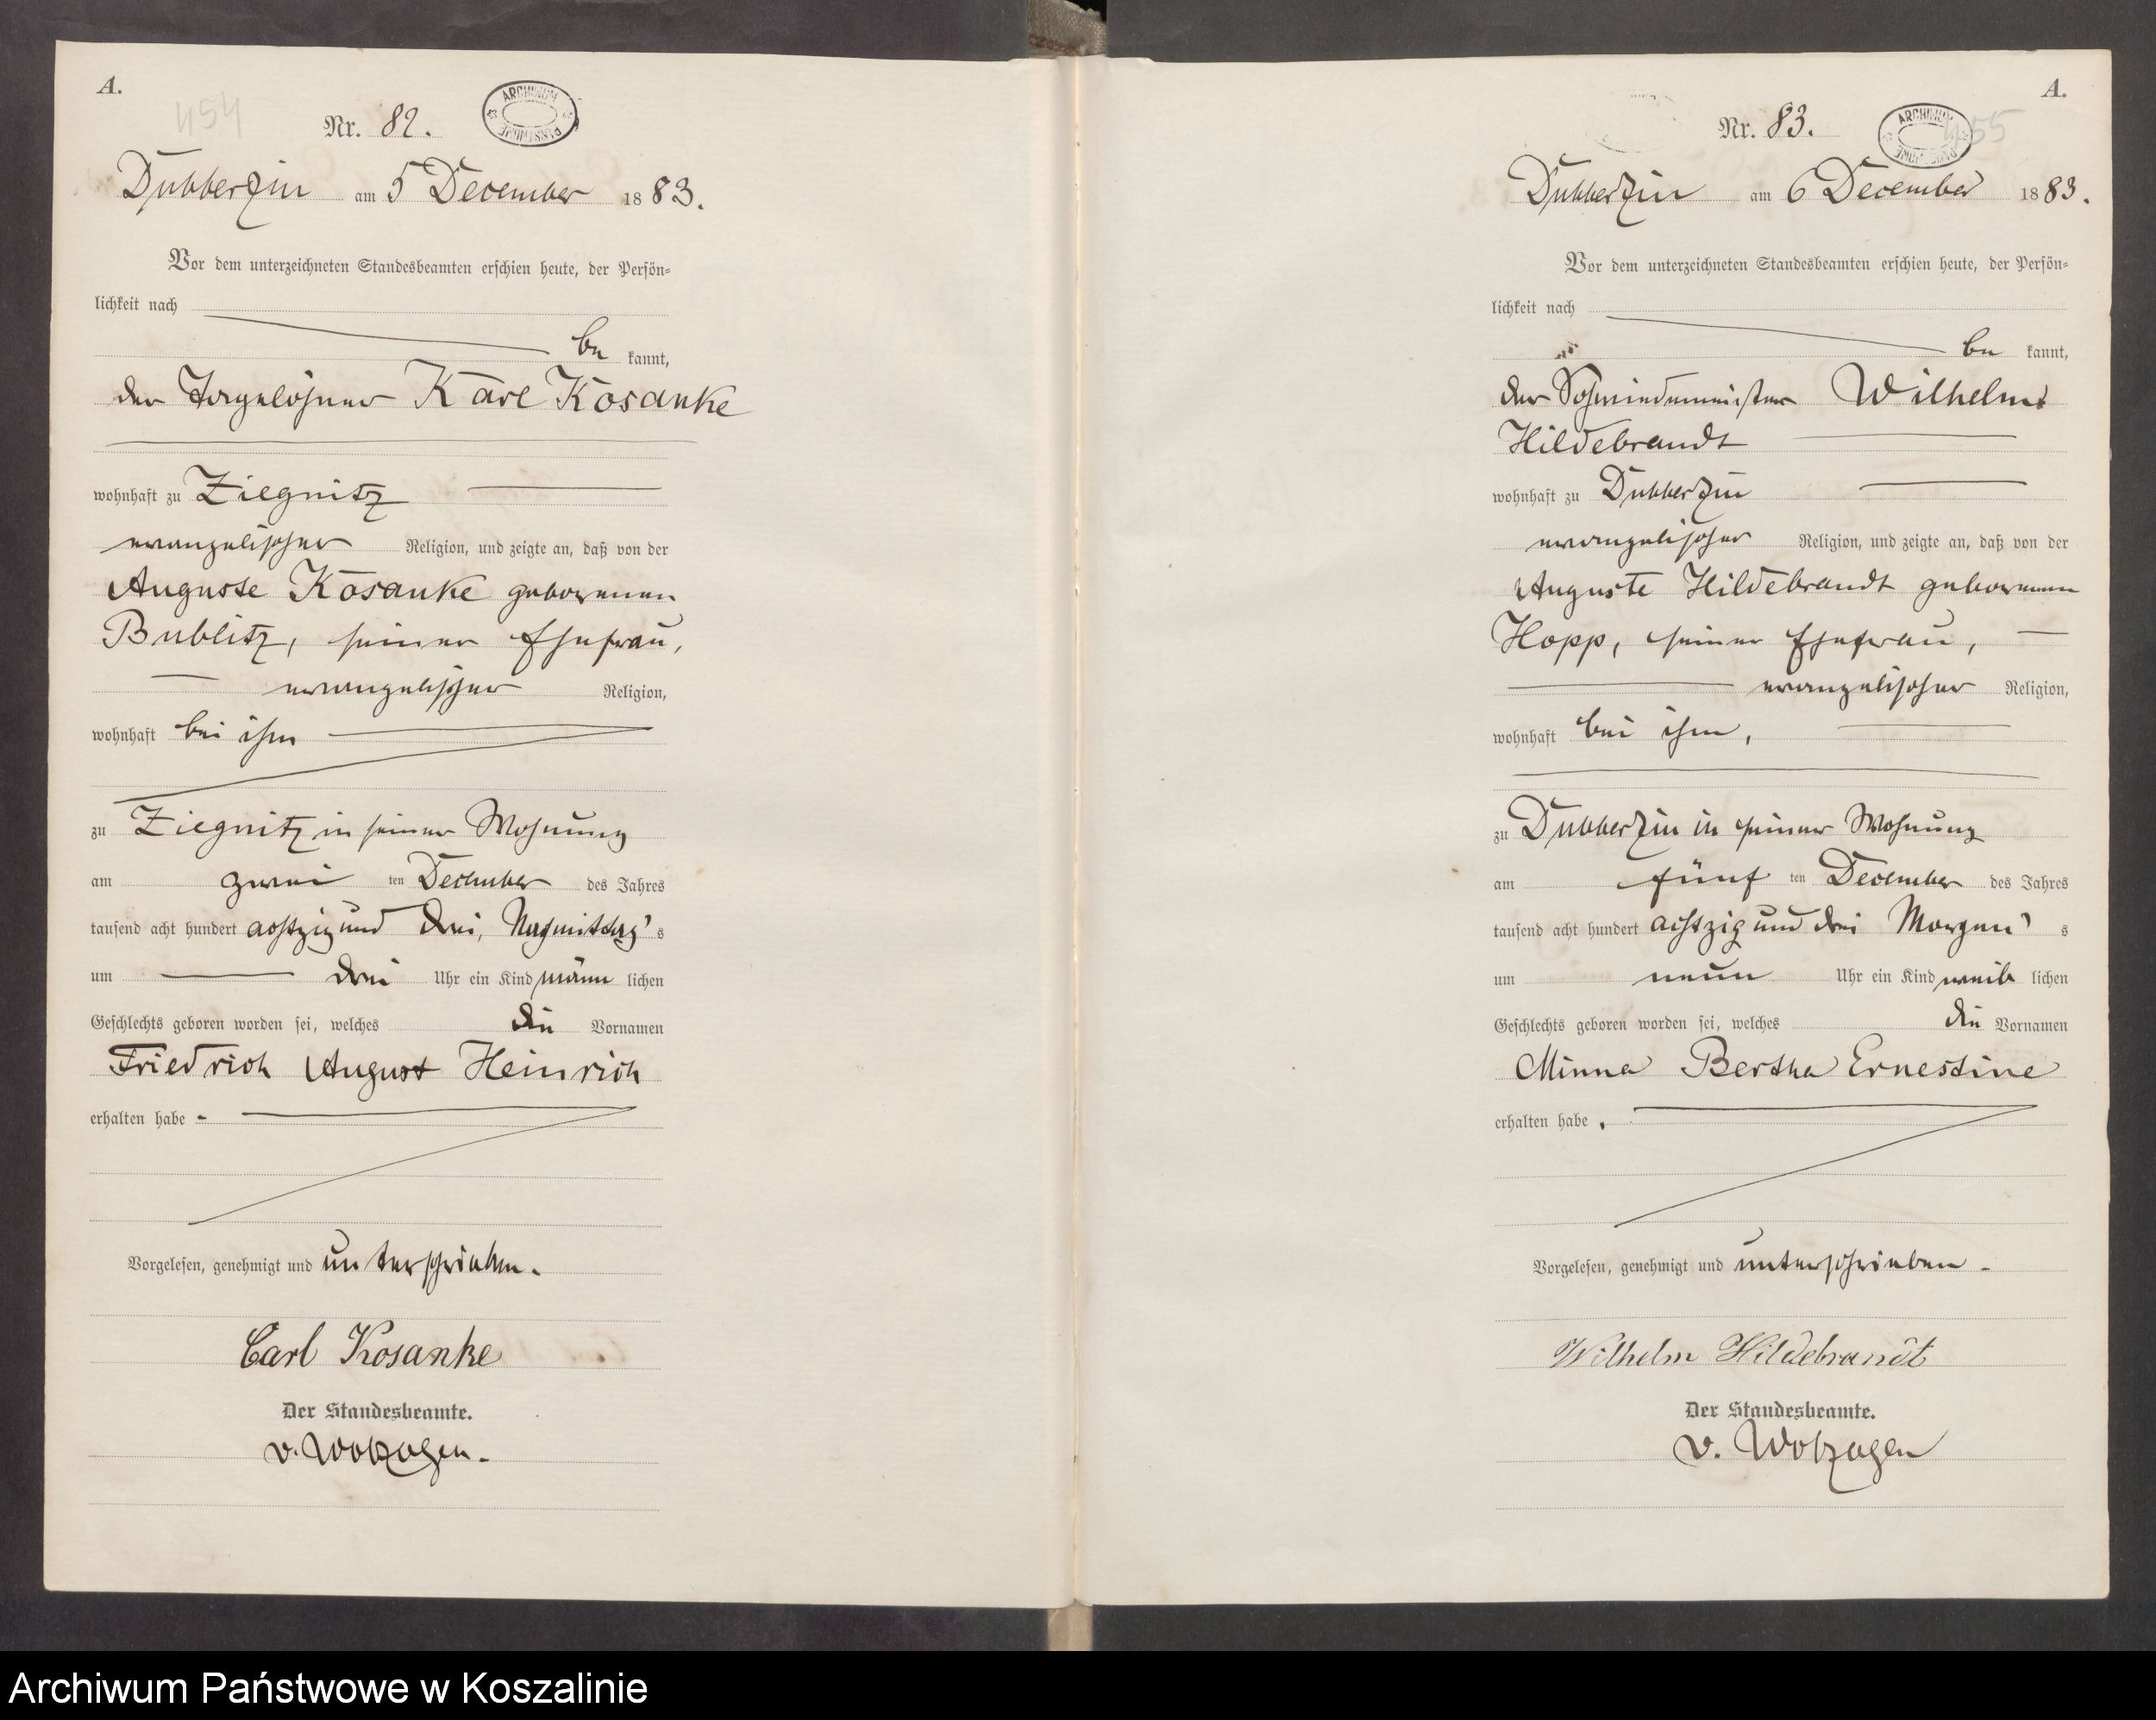 A.
454
Nr. 82.
ARCHIWUM PAŃSTWOWE
Dubberzin am 5 December 1883.
Vor dem unterzeichneten Standesbeamten erschien heute, der Persön-
lichkeit nach
be kannt,
der Tagelöhner Karl Kosanke
wohnhaft zu Ziegnitz
evangelischer Religion, und zeigte an, daß von der
Auguste Kosanke geborenen
Bublitz, seiner Ehefrau,
evangelischer Religion,
wohnhaft bei ihm
zu Ziegnitz in seiner Wohnung
am zwei ten December des Jahres
tausend acht hundert achtzig und drei, Nachmittag's
um drei Uhr ein Kind männ lichen
Geschlechts geboren worden sei, welches die Vornamen
Friedrich August Heinrich
erhalten habe -
Vorgelesen, genehmigt und unterschrieben.
Carl Kosanke
Der Standesbeamte.
v. Wolzogen.
A.
Nr. 83.
ARCHIWUM PAŃSTWOWE
455
Dubberzin am 6 December 1883.
Vor dem unterzeichneten Standesbeamten erschien heute, der Persön-
lichkeit nach
be kannt,
der Schmiedemeister Wilhelm
Hildebrandt
wohnhaft zu Dubberzin
evangelischer Religion, und zeigte an, daß von der
Auguste Hildebrandt geborenen
Hopp, seiner Ehefrau,
evangelischer Religion,
wohnhaft bei ihm,
zu Dubberzin in seiner Wohnung
am fünf ten December des Jahres
tausend acht hundert achtzig und drei Morgen's
um neun Uhr ein Kind weib lichen
Geschlechts geboren worden sei, welches die Vornamen
Minna Bertha Ernestine
erhalten habe.
Vorgelesen, genehmigt und unterschrieben.
Wilhelm Hildebrandt
Der Standesbeamte.
v. Wolzogen
Archiwum Państwowe w Koszalinie